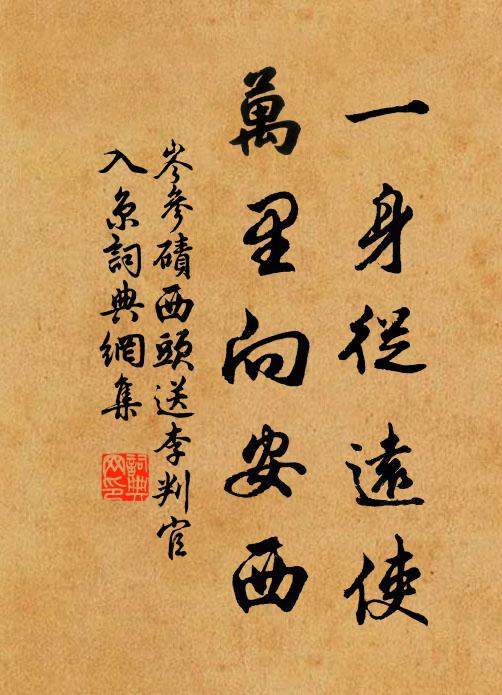 一身從遠使
萬里向安西
岑參磧西頭送李判官
入京詞典網集
詞典
网印